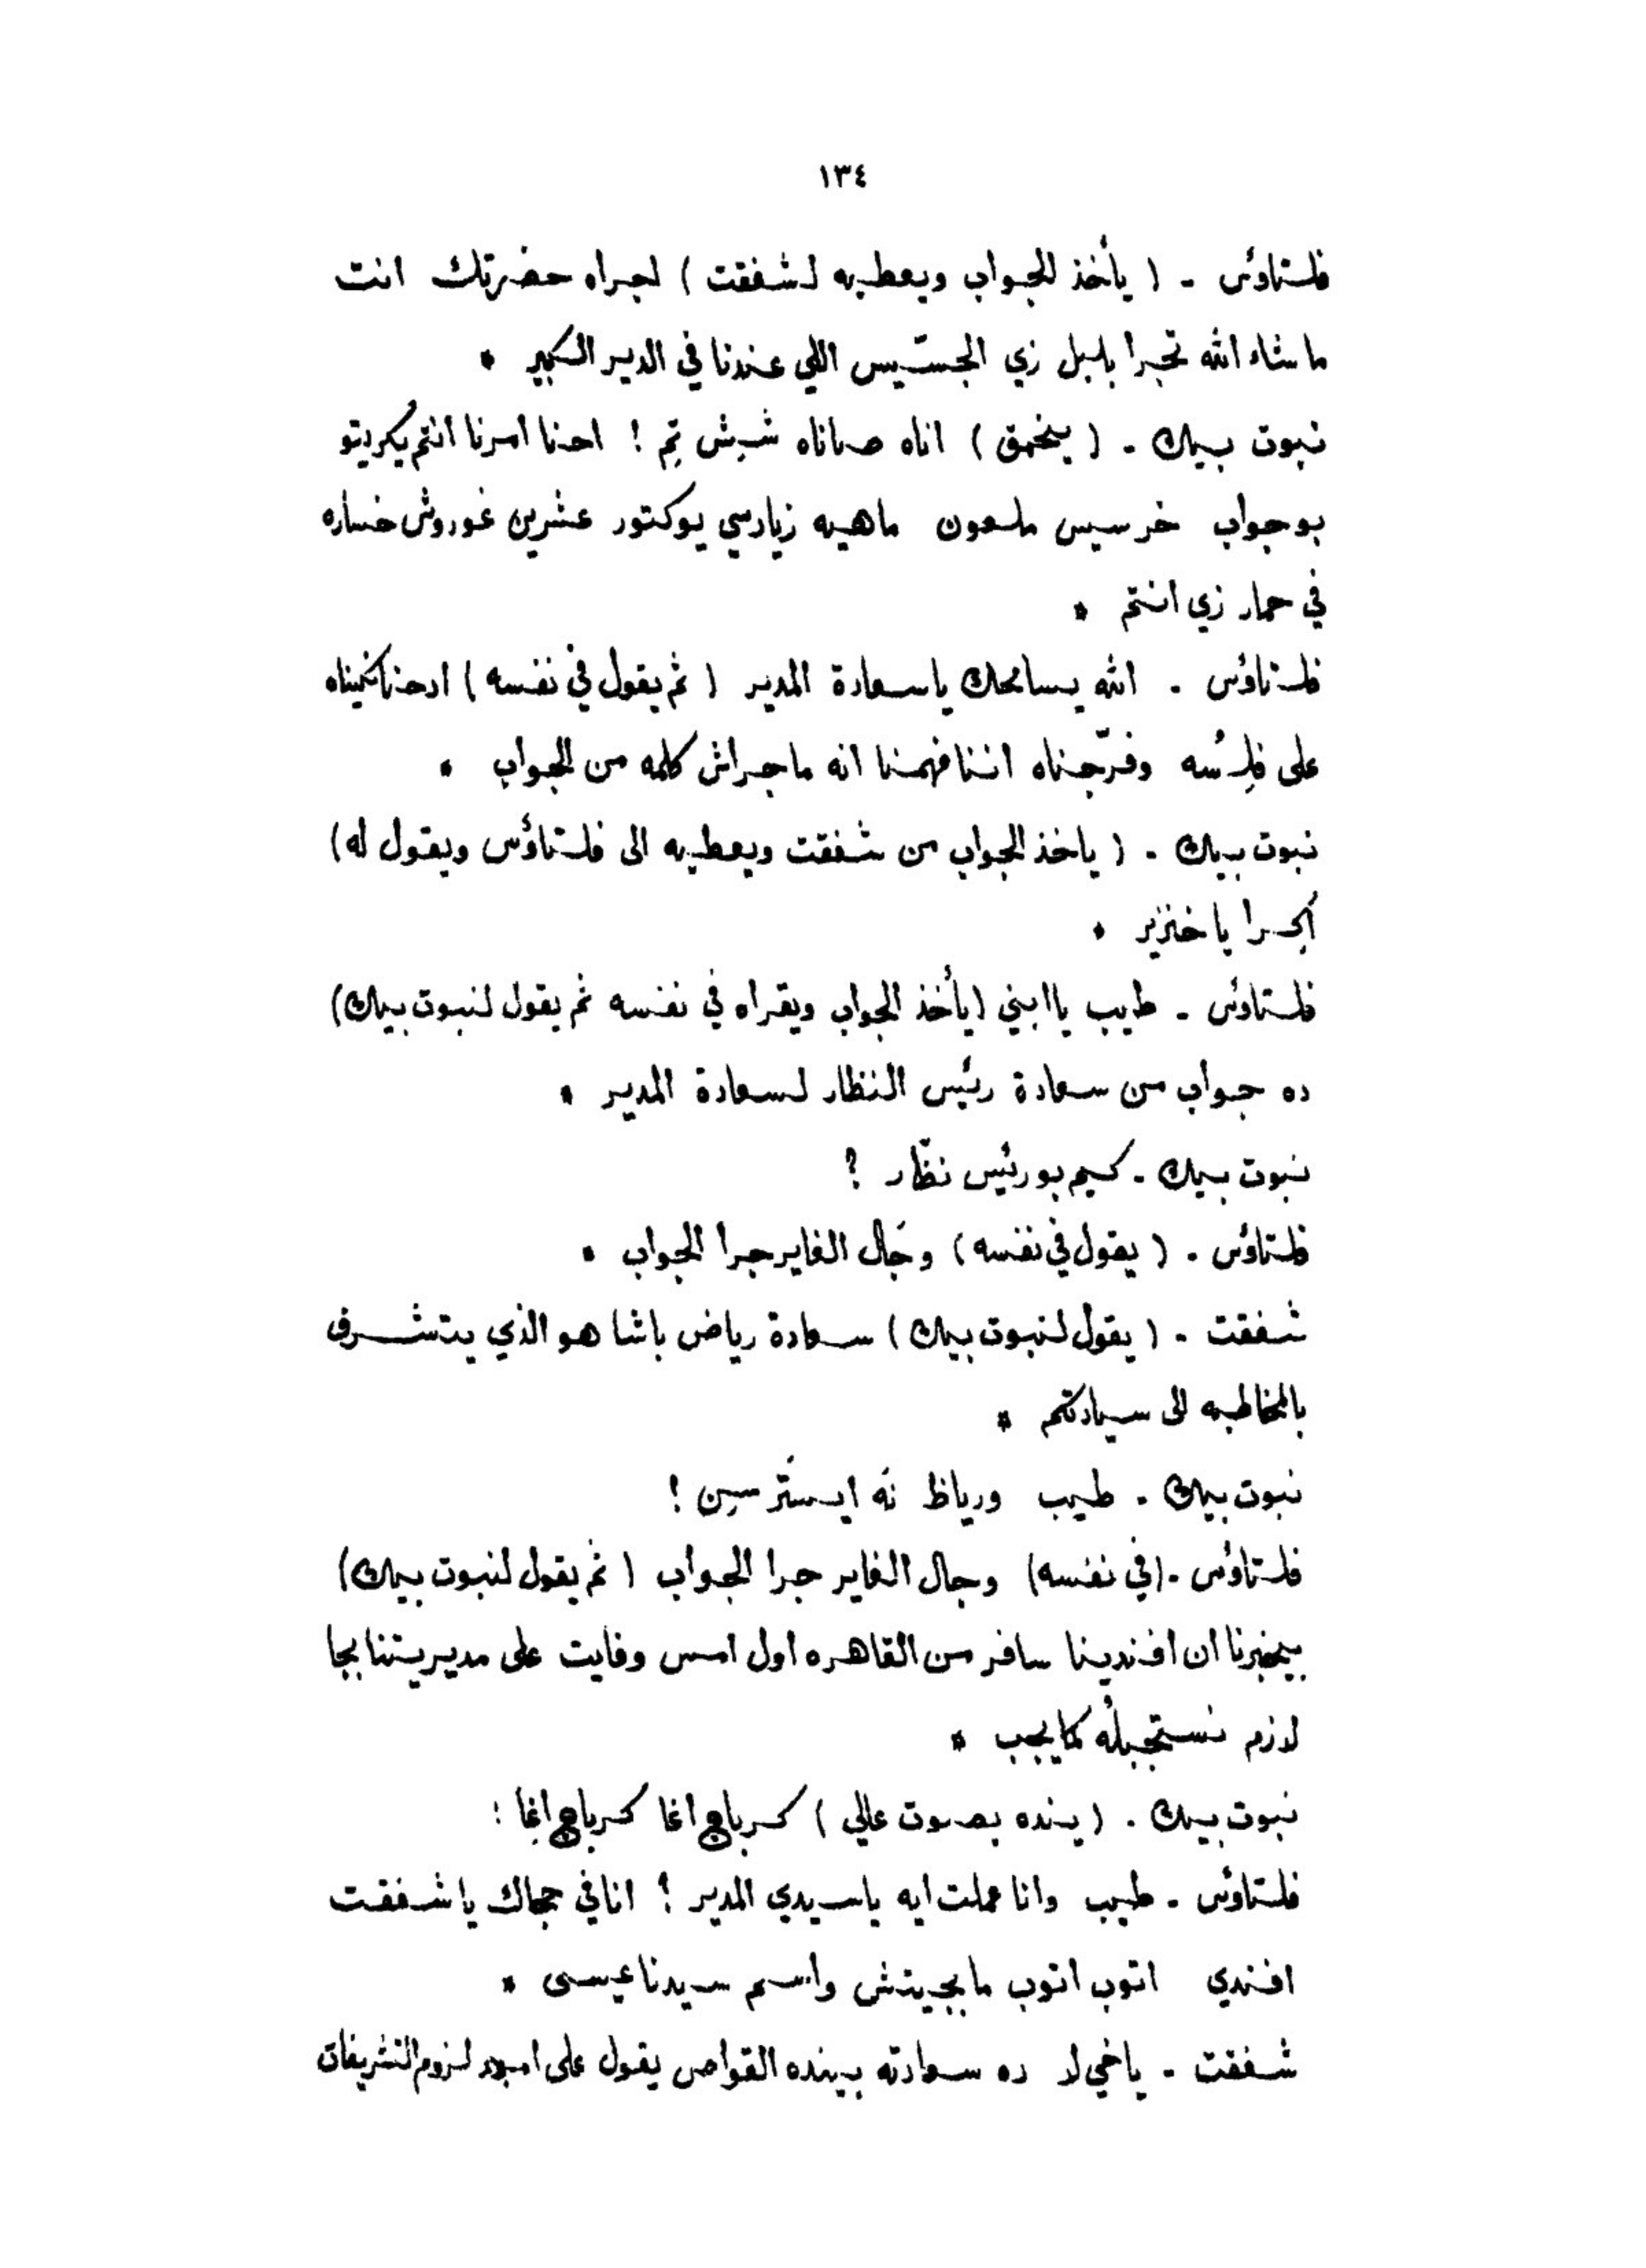 ١٣٤
فلستاؤس - ( يأخذ الجواب ويعطيه لشفقت ) اجراه حضرتك انت
ماشاء الله تجرا بلبل زي الجسّيس اللي عندنا في الدير الكبير *
نبوت بيك - ( ينحمق ) اناه صاناه شبش تِم ! احنا امرنا انتم يُكريتو
بوجواب خرسيس ملعون ماهيه زيارسي يوكتور عشرين غوروش خساره
في حمار زي انتم *
فلستاؤس - الله يسامحك ياسعادة المدير ( ثم يقول في نفسه )
على فلِسُه وفرّجناه اننا فهمنا انه ماجراش كلمه من الجواب *
نبوت بيك - ( ياخذ الجواب من شفقت ويعطيه الى فلستاؤس ويقول له )
اُجرا ياخنزير *
فلستاؤس - طيب ياابني ( يأخذ الجواب ويقراه في نفسه ثم يقول لنبوت بيك )
ده جواب من سعادة رئيس النظار لسعادة المدير *
نبوت بيك - كيم بو رئيس نظّار ؟
فلستاؤس - ( يقول في نفسه ) وجَال الفاير جرا الجواب *
شفقت - ( يقول لنبوت بيك ) سعادة رياض باشا هو الذي يتشرف
بالمخاطبه الى سيادتكم *
نبوت بيك - طيب ورياظ نَه ايستَرسِن !
فلستاؤس - ( في نفسه ) وجال الفاير جرا الجواب ( ثم يقول لنبوت بيك )
بيخبرنا ان افندينا سافر من القاهره اول امس وفايت على مديريتنا بجا
لازم نستجبلُه كما يجب *
نبوت بيك - ( ينده بصوت عالي ) كرباج اغا كرباج اغا !
فلستاؤس - طيب وانا عملت ايه ياسيدي المدير ؟ انا في جمالك ياشفقت
افندي اتوب اتوب مابجيتش واسم سيدنا عيسى *
شفقت - ياخي لا ده سعادته بينده القواص يقول على امور لزوم التشريفات